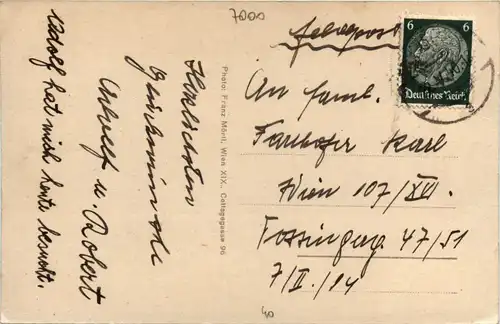 7000
Feldpost
6
Deutsches Reich
An Famil.
Farthofer Karl
Wien 107/XVI.
47/51
7/II./14
40
Photo: Franz Mörtl, Wien XIX., Cottagegasse 96
Herzlichsten
u. Robert
Adolf hat mich heute besucht.